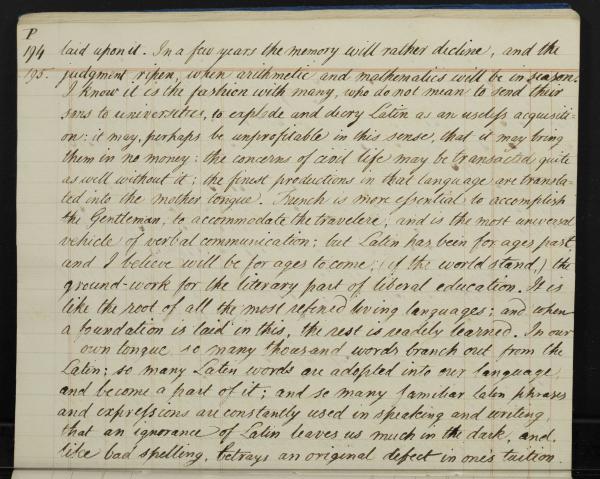 P
194 laid upon it. In a few years the memory will rather decline, and the
195. judgment ripen, when arithmetic and mathematics will be in season.
I know it is the fashion with many, who do not mean to send their
sons to universities, to explode and decry Latin as an useless acquisiti-
on: it may, perhaps be unprofitable in this sense, that it may bring
them in no money: the concerns of civil life may be transacted quite
as well without it; the finest productions in that language are transla-
ted into the mother tongue. French is more essential to accomplish
the Gentleman, to accommodate the travelere, and is the most universal
vehicle of verbal communication; but Latin has been for ages past,
and I believe will be for ages to come, (if the world stand,) the
ground-work for the literary part of liberal education. It is
like the root of all the most refined living languages; and when
a foundation is laid in this, the rest is readily learned. In our
own tongue so many thousand words branch out from the
Latin; so many Laten words are adopted into our language
and become a part of it; and so many familiar latin phrases
and expressions are constantly used in speaking and writing
that an ignorance of Latin leaves us much in the dark, and,
like bad spelling, betrays an original defect in one's tuition.